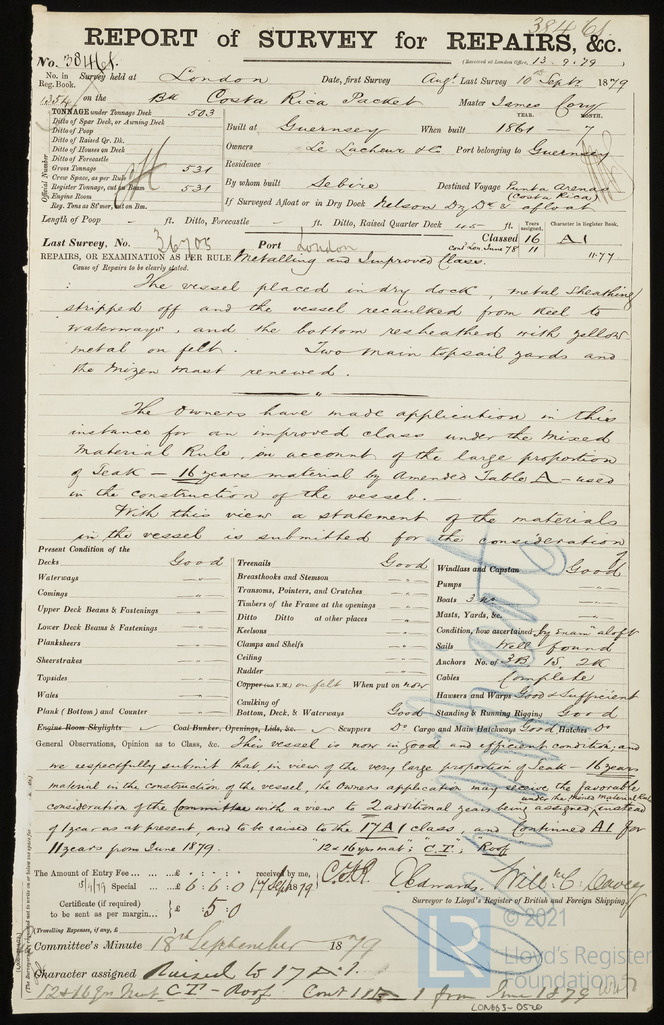 38461
REPORT of SURVEY for REPAIRS, &c.
No. 38461. (Received at London Office, 13.9.79
No. in Reg. Book. Survey held at London Date, first Survey Augt Last Survey 10th Septr. 1879
1354 on the Bk Costa Rica Packet Master James Cory
TONNAGE under Tonnage Deck 503
Ditto of Spar Deck, or Awning Deck
Ditto of Poop
Ditto of Raised Qr. Dk.
Ditto of Houses on Deck
Ditto of Forecastle
Gross Tonnage 531
Crew Space, as per Rule
Register Tonnage, cut on Beam 531
Engine Room
Reg. Tons as St'mer, cut on Bm.
Official Number
YEAR. MONTH.
Built at Guernsey When built 1861 — 7
Owners Le Lacheur & Co Port belonging to Guernsey
Residence
By whom built Sebire Destined Voyage Punta Arenas (Costa Rica)
If Surveyed Afloat or in Dry Dock Nelson Dry Dk & afloat
Length of Poop — ft. Ditto, Forecastle ft. Ditto, Raised Quarter Deck 45 ft. Years assigned. Character in Register Book.
Last Survey, No. 36705 Port London Classed 16 A1
Cont Lon June 78 11 11.77
REPAIRS, OR EXAMINATION AS PER RULE Metalling and Improved Class.
Cause of Repairs to be clearly stated.
The vessel placed in dry dock, metal sheathing
stripped off and the vessel recaulked from keel to
waterways, and the bottom resheathed with yellow
metal on felt. Two main topsail yards and
the Mizen Mast renewed.
The Owners have made application in this
instance for an improved class under the Mixed
Material Rule, on account of the large proportion
of Teak — 16 years material by Amended Table A — used
in the construction of the vessel. —
With this view a statement of the materials
in the vessel is submitted for the consideration
Present Condition of the
Decks Good
Waterways "
Comings "
Upper Deck Beams & Fastenings "
Lower Deck Beams & Fastenings "
Planksheers "
Sheerstrakes "
Topsides "
Wales "
Plank (Bottom) and Counter "
Treenails Good
Breasthooks and Stemson "
Transoms, Pointers, and Crutches "
Timbers of the Frame at the openings "
Ditto Ditto at other places "
Keelsons "
Clamps and Shelfs "
Ceiling "
Rudder "
Copper (or Y.M.) on felt When put on now
Caulking of
Bottom, Deck, & Waterways Good
Windlass and Capstan Good
Pumps "
Boats 3 No "
Masts, Yards, &c. "
Condition, how ascertained by exam aloft
Sails Well found
Anchors No. of 3B, 1S, 2K
Cables Complete
Hawsers and Warps Good & sufficient
Standing & Running Rigging Good
Engine Room Skylights Coal Bunker, Openings, Lids, &c. Scuppers Do Cargo and Main Hatchways Good Hatches Do
General Observations, Opinion as to Class, &c. This vessel is now in good and efficient condition, and
we respectfully submit that, in view of the very large proportion of Teak — 16 years
material in the construction of the vessel, the Owners application may receive the favorable
consideration of the Committee with a view to 2 additional years being assigned under the Mixed material Rule instead
of 1 year as at present, and to be raised to the 17 A1 class, and Continued A1 for
11 years from June 1879. "12 & 16 yrs mat": "C.T": "Roof"
The Amount of Entry Fee ... ... £ : : received by me,
Special ... £ 6 : 6 : 0 17 Sept 1879
Certificate (if required)
to be sent as per margin... £ : 5 : 0
(Travelling Expenses, if any, £ )
Willm C. Davey
Surveyor to Lloyd's Register of British and Foreign Shipping.
Committee's Minute 18th September 1879
Character assigned Raised to 17 A.1.
12 & 16 yr Mat C.T — Roof Cont 11 — 1 from June 1879
© 2021
LR Lloyd's Register
Foundation
LON663-0526